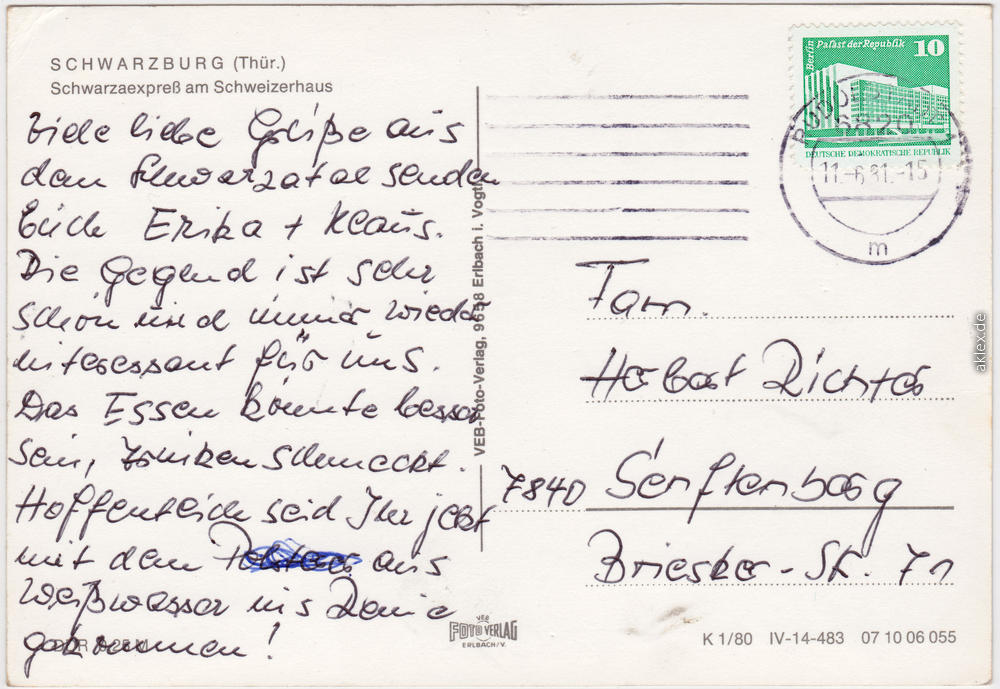 SCHWARZBURG (Thür.)
Schwarzaexpreß am Schweizerhaus
Viele liebe Grüße aus
dem Schwarzatal senden
Euch Erika + Klaus.
Die Gegend ist sehr
schön und immer wieder
interessant für uns.
Das Essen könnte besser
sein, trinken schmeckt.
Hoffentlich seid Ihr jetzt
mit dem aus
Weißwasser ins Reine
gekommen!
VEB-Foto-Verlag, 9658 Erlbach i. Vogtl.
VEB
FOTO VERLAG
ERLBACH/V.
Berlin Palast der Republik 10
DEUTSCHE DEMOKRATISCHE REPUBLIK
6820
11.-6.81.-15
m
Fam.
Herbert Richter
7840 Senftenberg
Briesker-Str. 71
K 1/80 IV-14-483 07 10 06 055
aklex.de